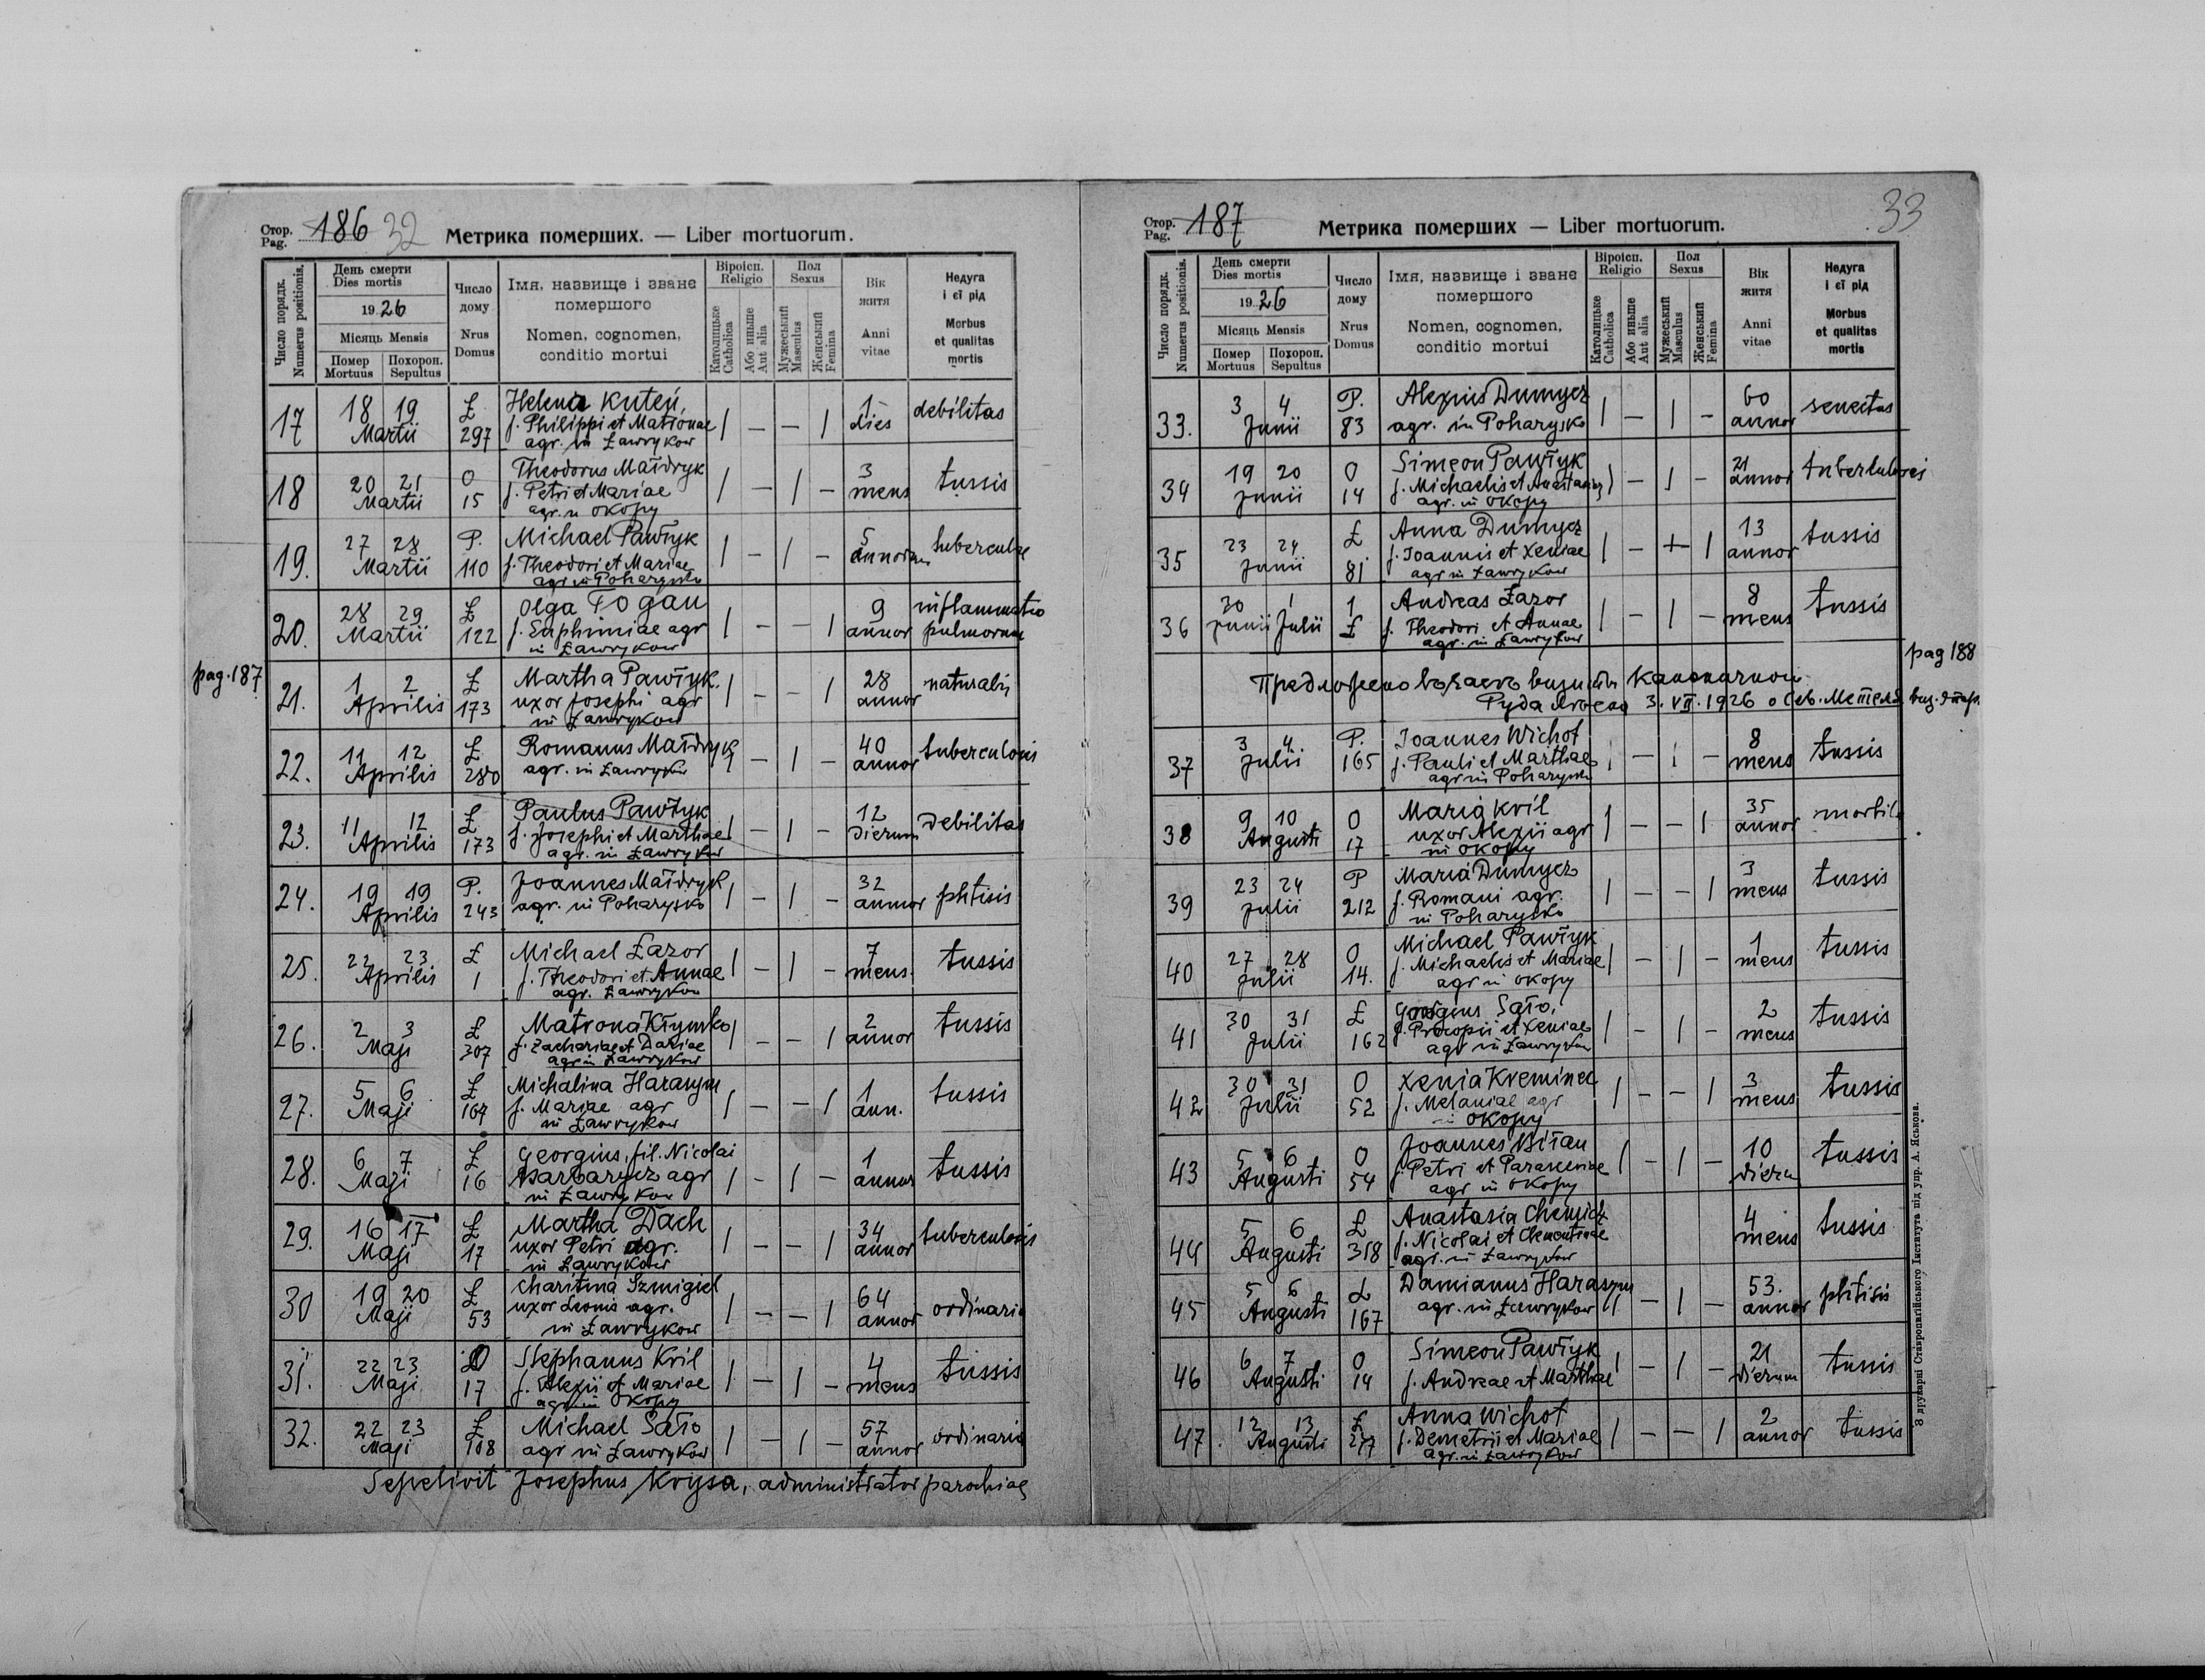 Стор. Pag. 186 32 Метрика померших. — Liber mortuorum.
Число порядк. Numerus positionis.
День смерти Dies mortis
1926
Місяць Mensis
Помер Mortuus
Похорон. Sepultus
Число дому Nrus Domus
Імя, назвище і зване помершого
Nomen, cognomen, conditio mortui
Віроісп. Religio
Католицьке Catholica
Або иньше Aut alia
Пол Sexus
Мужеський Masculus
Женський Femina
Вік житя Anni vitae
Недуга і єї рід
Morbus et qualitas mortis
17 18 19 Martii Ł 297 Helena Kuteń, f. Philippi et Matronae agr. in Ławrykow | — — | 1 dies debilitas
18 20 21 Martii O 15 Theodorus Małdryk f. Petri et Mariae agr. in Okopy | — | — 3 mens tussis
19. 27 28 Martii P. 110 Michael Pawłyk f. Theodori et Mariae agr in Poharysko | — | — 5 annorum
20. 28 29 Martii Ł 122 Olga f. Euphimiae agr in Ławrykow | — — | 9 annor inflammatio pulmorum
pag. 187
21. 1 2 Aprilis Ł 173 Martha Pawłyk. uxor Josephi agr in Ławrykow | — — | 28 annor naturalis
22. 11 12 Aprilis Ł 280 Romanus Małdryk agr. in Ławrykow | — | — 40 annor tuberculosis
23. 11 12 Aprilis Ł 173 Paulus Pawłyk f. Josephi et Marthae agr. in Ławrykow | — | — 12 dierum debilitas
24. 19 19 Aprilis P. 243 Joannes Małdryk agr. in Poharysko | — | — 32 annor phtisis
25. 22 23 Aprilis Ł 1 Michael Łazor f. Theodori et Annae agr. Ławrykow | — | — 7 mens. tussis
26. 2 3 Maji Ł 307 Matrona Kłymko f. Zachariae et Dariae agr in Ławrykow | — — | 2 annor tussis
27. 5 6 Maji Ł 167 Michalina Harasym f. Mariae agr in Ławrykow | — — | 1 ann. tussis
28. 6 7 Maji Ł 16 Georgius, fil. Nicolai Barbarycz agr in Ławrykow | — | — 1 annor tussis
29. 16 17 Maji Ł 17 Martha Dach uxor Petri agr. in Ławrykow | — — | 34 annor tuberculosis
30 19 20 Maji Ł 53 Charitina Szmigiel uxor Leonis agr. in Ławrykow | — — | 64 annor ordinaria
31. 22 23 Maji O 17 Stephanus Kril f. Alexii et Mariae agr in Okopy | — | — 4 mens tussis
32. 22 23 Maji Ł 108 Michael Sało agr in Ławrykow | — | — 57 annor ordinaria
Sepelivit Josephus Krysa, administrator parochiae
Стор. Pag. 187 Метрика померших — Liber mortuorum. 33
Число порядк. Numerus positionis.
День смерти Dies mortis
1926
Місяць Mensis
Помер Mortuus
Похорон. Sepultus
Число дому Nrus Domus
Імя, назвище і зване помершого
Nomen, cognomen, conditio mortui
Віроісп. Religio
Католицьке Catholica
Або иньше Aut alia
Пол Sexus
Мужеський Masculus
Женський Femina
Вік житя Anni vitae
Недуга і єї рід
Morbus et qualitas mortis
33. 3 4 Junii P. 83 Alexius Dumycz agr. in Poharysko | — | — 60 annor senectus
34 19 20 Junii O 14 Simeon Pawłyk f. Michaelis et Anastasiae agr. in Okopy | — | — 21 annor
35 23 24 Junii Ł 81 Anna Dumycz f. Joannis et Xeniae agr in Ławrykow | — + | 13 annor tussis
36 30 Junii 1 Julii 1 Ł Andreas Łazor f. Theodori et Annae agr. in Ławrykow | — | — 8 mens tussis
pag 188
Предложено канонічної
3. VII. 1926
37 3 4. Julii P. 165 Joannes Wichot f. Pauli et Marthae agr in Poharysko | — | — 8 mens tussis
38 9 10 Augusti O 17 Maria Kril uxor Alexii agr in Okopy | — — | 35 annor
39 23 24 Julii P 212 Maria Dumycz f. Romani agr. in Poharysko | — — | 3 mens tussis
40 27 28 Julii O 14. Michael Pawłyk f. Michaelis et Mariae agr in Okopy | — | — 1 mens tussis
41 30 31 Julii Ł 162 Georgius Sało, f. Procopii et Xeniae agr in Ławrykow | — | — 2 mens tussis
42 30 31 Julii O 52 Xenia Kreminec f. Melaniae agr in Okopy | — — | 3 mens tussis
43 5 6 Augusti O 54 Joannes Biłan f. Petri et Parasceviae agr in Okopy | — | — 10 dieru tussis
44 5 6 Augusti Ł 318 Anastasia f. Nicolai et Clementinae agr. in Ławrykow 4 mens tussis
45 5 6 Augusti Ł 167 Damianus Harasym agr. in Ławrykow | — | — 53. annor phtisis
46 6 7 Augusti O 14 Simeon Pawłyk f. Andreae et Marthae | — | — 21 dierum tussis
47. 12 13 Augusti Ł 277 Anna Wichot f. Demetrii et Mariae agr. in Ławrykow | — — | 2 annor tussis
З друкарні Ставропігійського Інститута під упр. А. Яськова.